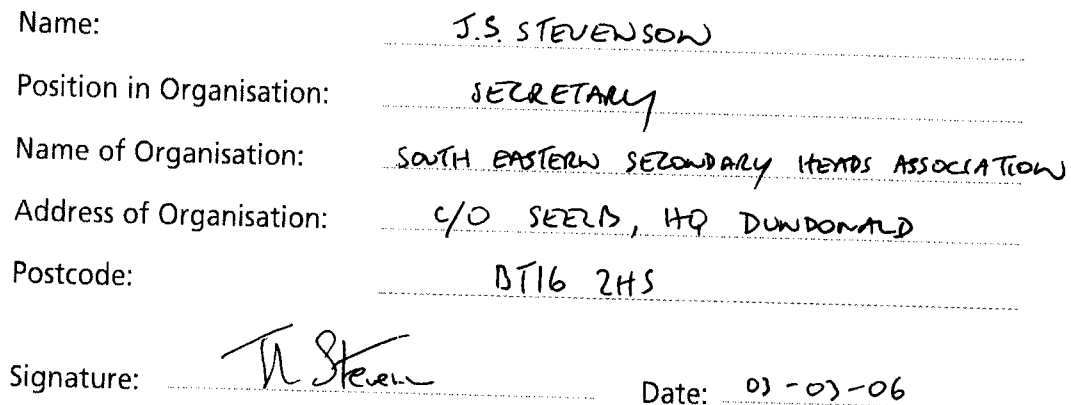 Name: J.S. STEVENSON
Position in Organisation: SECRETARY
Name of Organisation: SOUTH EASTERN SECONDARY HEADS ASSOCIATION
Address of Organisation: C/O SEELB, HQ DUNDONALD
Postcode: BT16 2HS
Signature: Date: 03-03-06